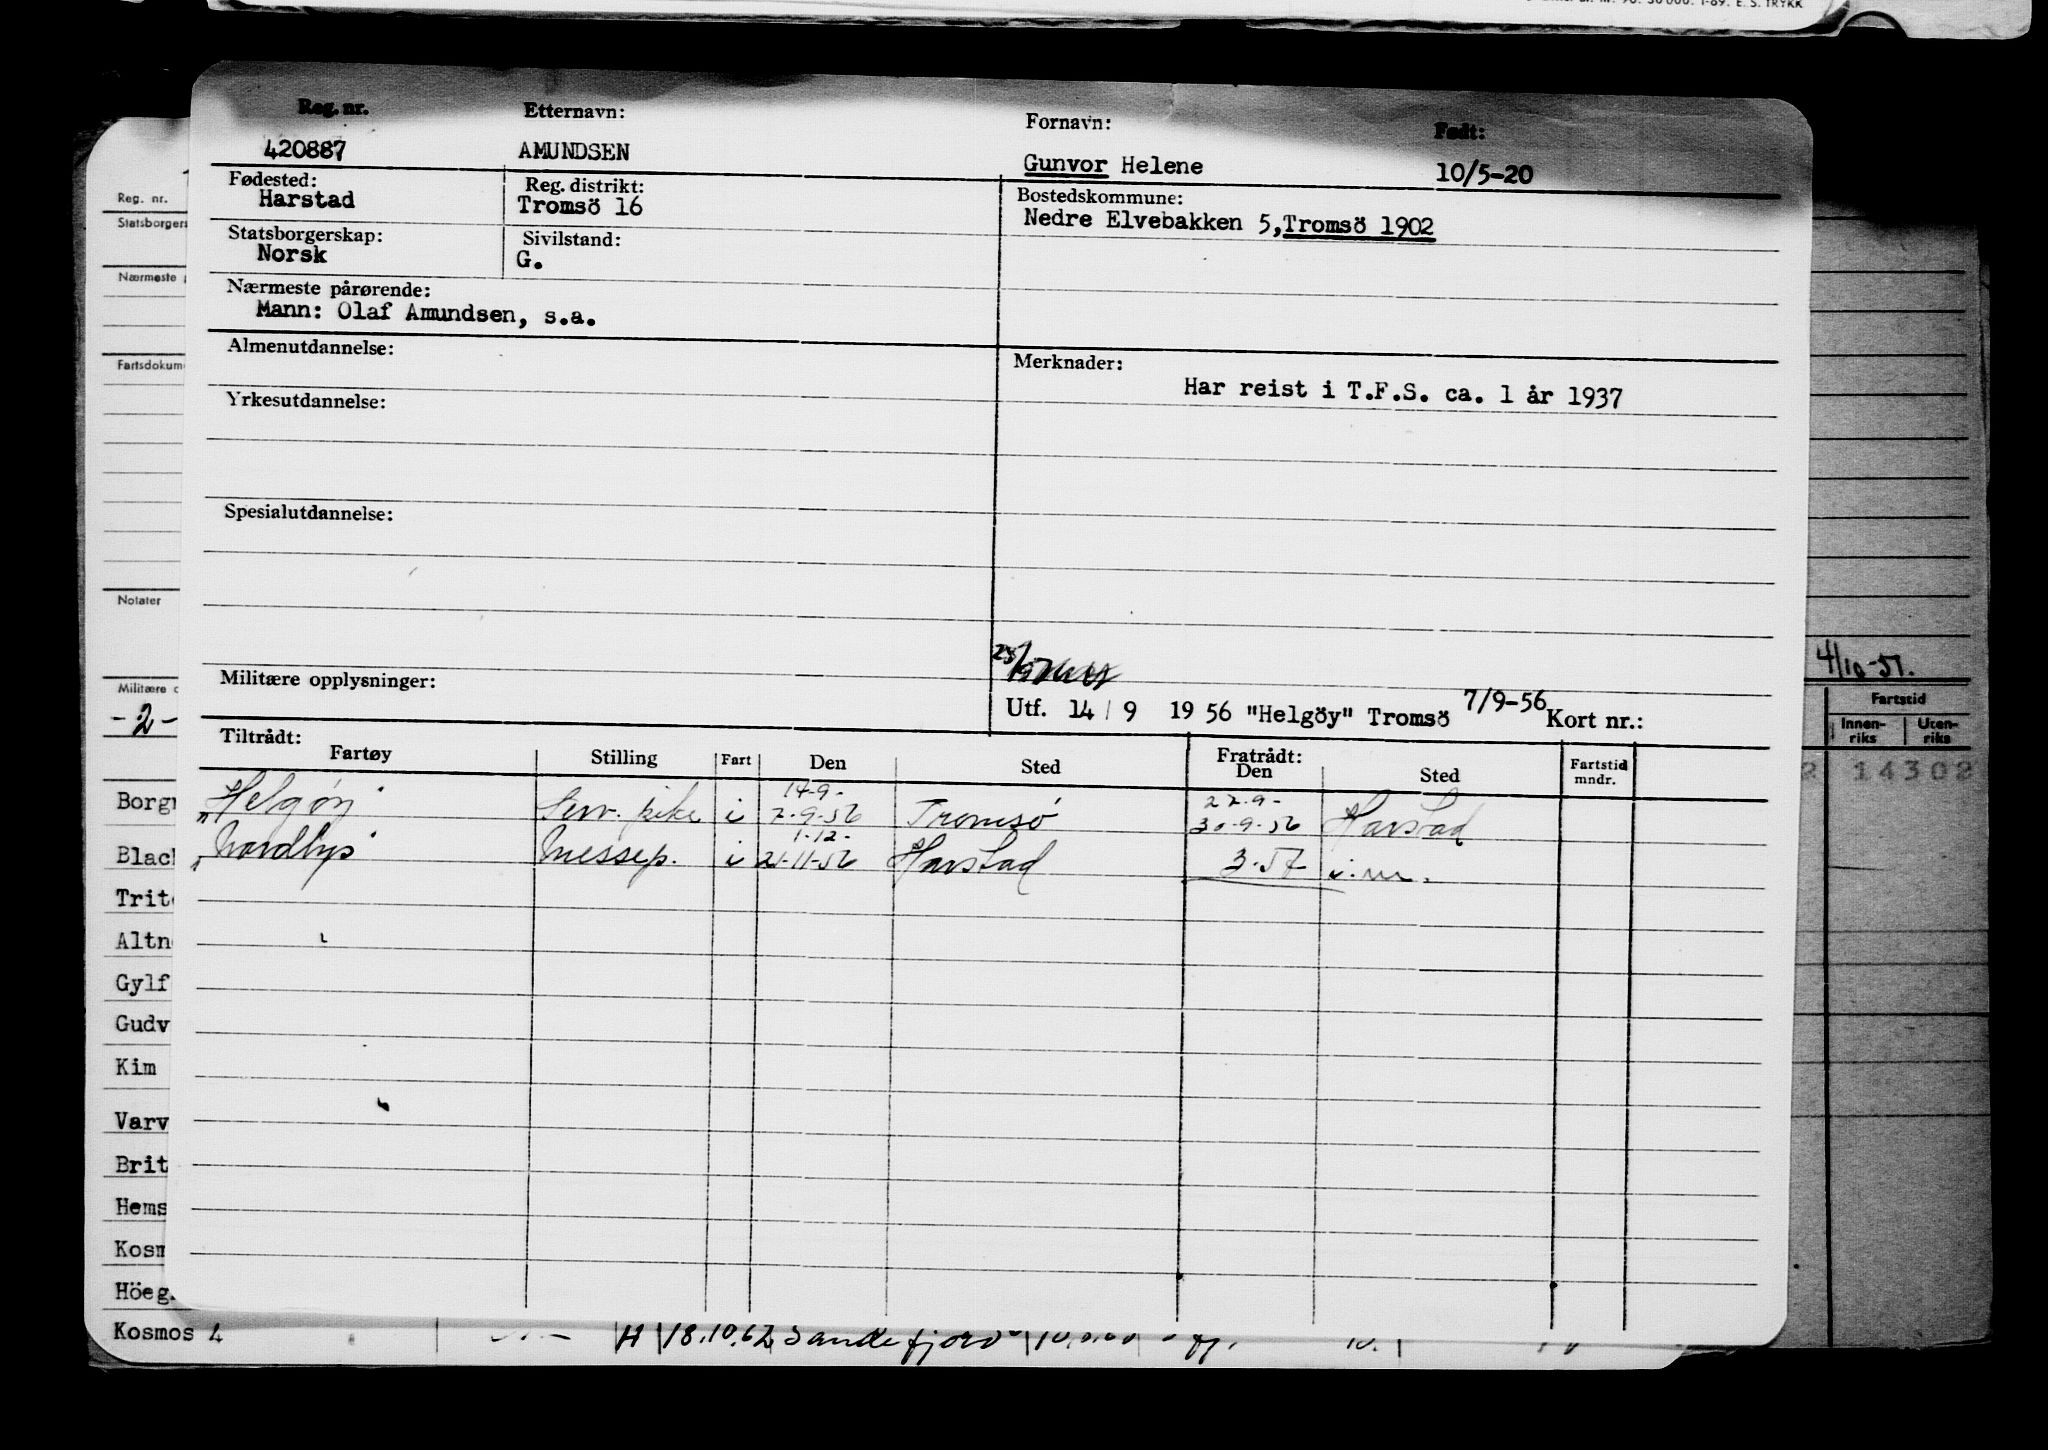 1-69. E. S. TRYKK
Reg. nr. Etternavn: Fornavn: Født:
420887 AMUNDSEN Gunvor Helene 10/5-20
Fødested: Reg. distrikt: Bostedskommune:
Harstad Tromsö 16 Nedre Elvebakken 5,Tromsö 1902
Statsborgerskap: Sivilstand:
Norsk G.
Nærmeste pårørende:
Mann: Olaf Amundsen, s.a.
Almenutdannelse: Merknader:
Har reist i T.F.S. ca. 1 år 1937
Yrkesutdannelse:
Spesialutdannelse:
Militære opplysninger:
Utf. 14 / 9 19 56 "Helgöy" Tromsö 7/9-56 Kort nr.:
Tiltrådt: Fratrådt:
Fartøy Stilling Fart Den Sted Den Sted Fartstid mndr.
14-9- 22-9-
"Helgøy" Serv. pike i 7-9-56 Tromsø 30-9-56 Harstad
1-12-
"Nordlys" Messep. i 21-11-56 Harstad 3-57 i.m.
Reg. nr.
Statsborgers
Nærmeste
Fartsdokum
Notater
Militære
-2-
4/10-51.
Fartstid
Innen-riks Uten-riks
2 14302
Borg
Blac
Trit
Altn
Gylf
Gudv
Kim
Varv
Brit
Hems
Kosm
Höeg
Kosmos 4 H 18.10.62 Sandefjord